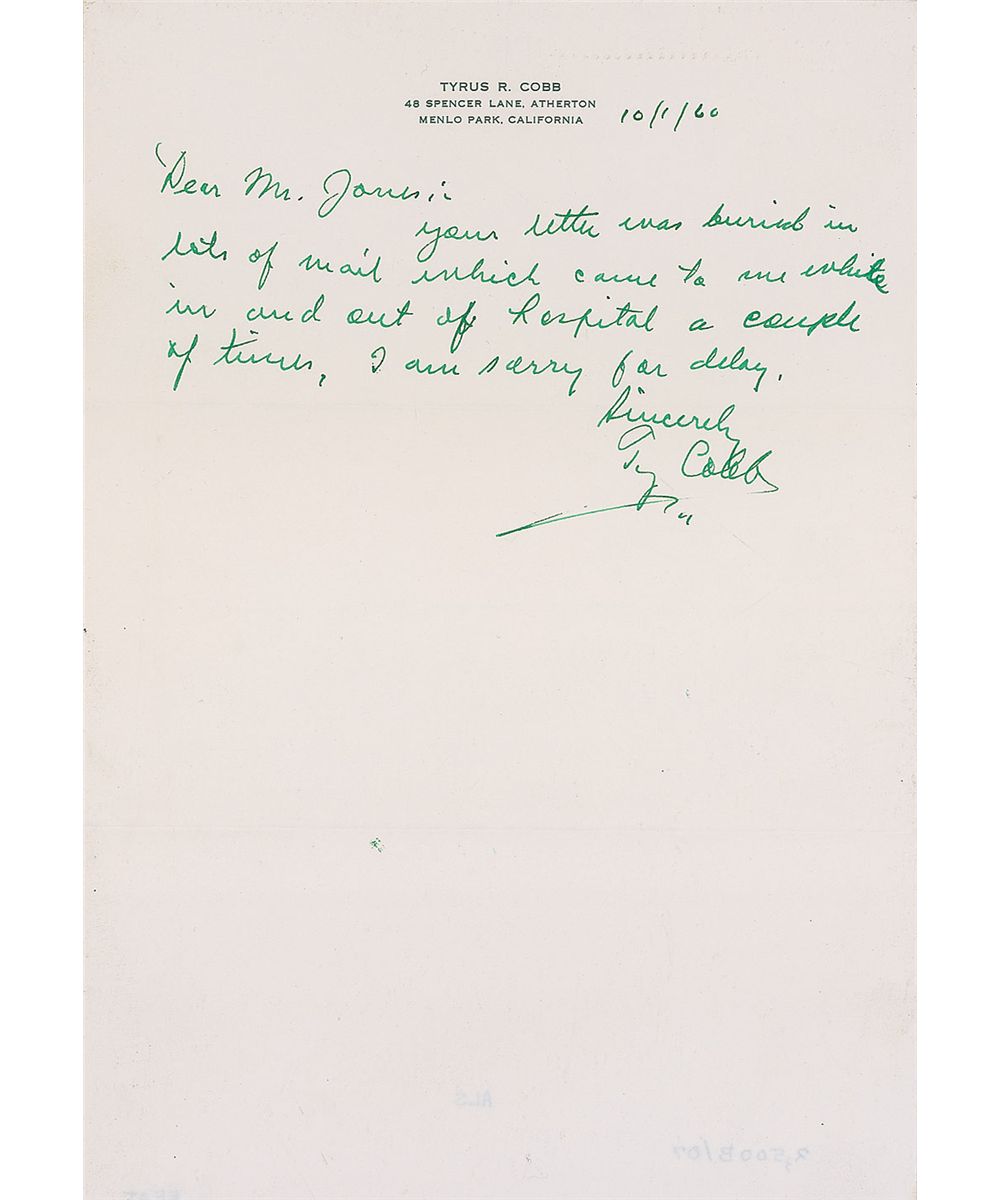 TYRUS R. COBB
48 SPENCER LANE, ATHERTON
MENLO PARK, CALIFORNIA
10/1/60
Dear Mr. Jones:
your letter was buried in
lots of mail which came to me while
in and out of hospital a couple
of times, I am sorry for delay.
Sincerely
Ty Cobb
ALS